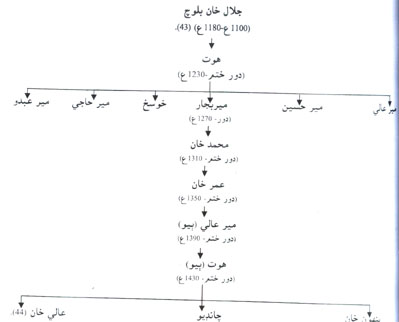 جلال خان بلوچ
(1100ع-1180ع) (43).
هوت
(دور ختم-1230ع)
مير عالي مير حسين ميربجار خوسخ مير حاجي مير عبدو
(دور-1270ع)
محمد خان
(دور ختم-1310ع)
عمر خان
(دور ختم-1350ع)
مير عالي (ٻيو)
(دور ختم-1390ع)
هوت (ٻيو)
(دور ختم-1430ع)
پنهون خان چانڊيو عالي خان (44).